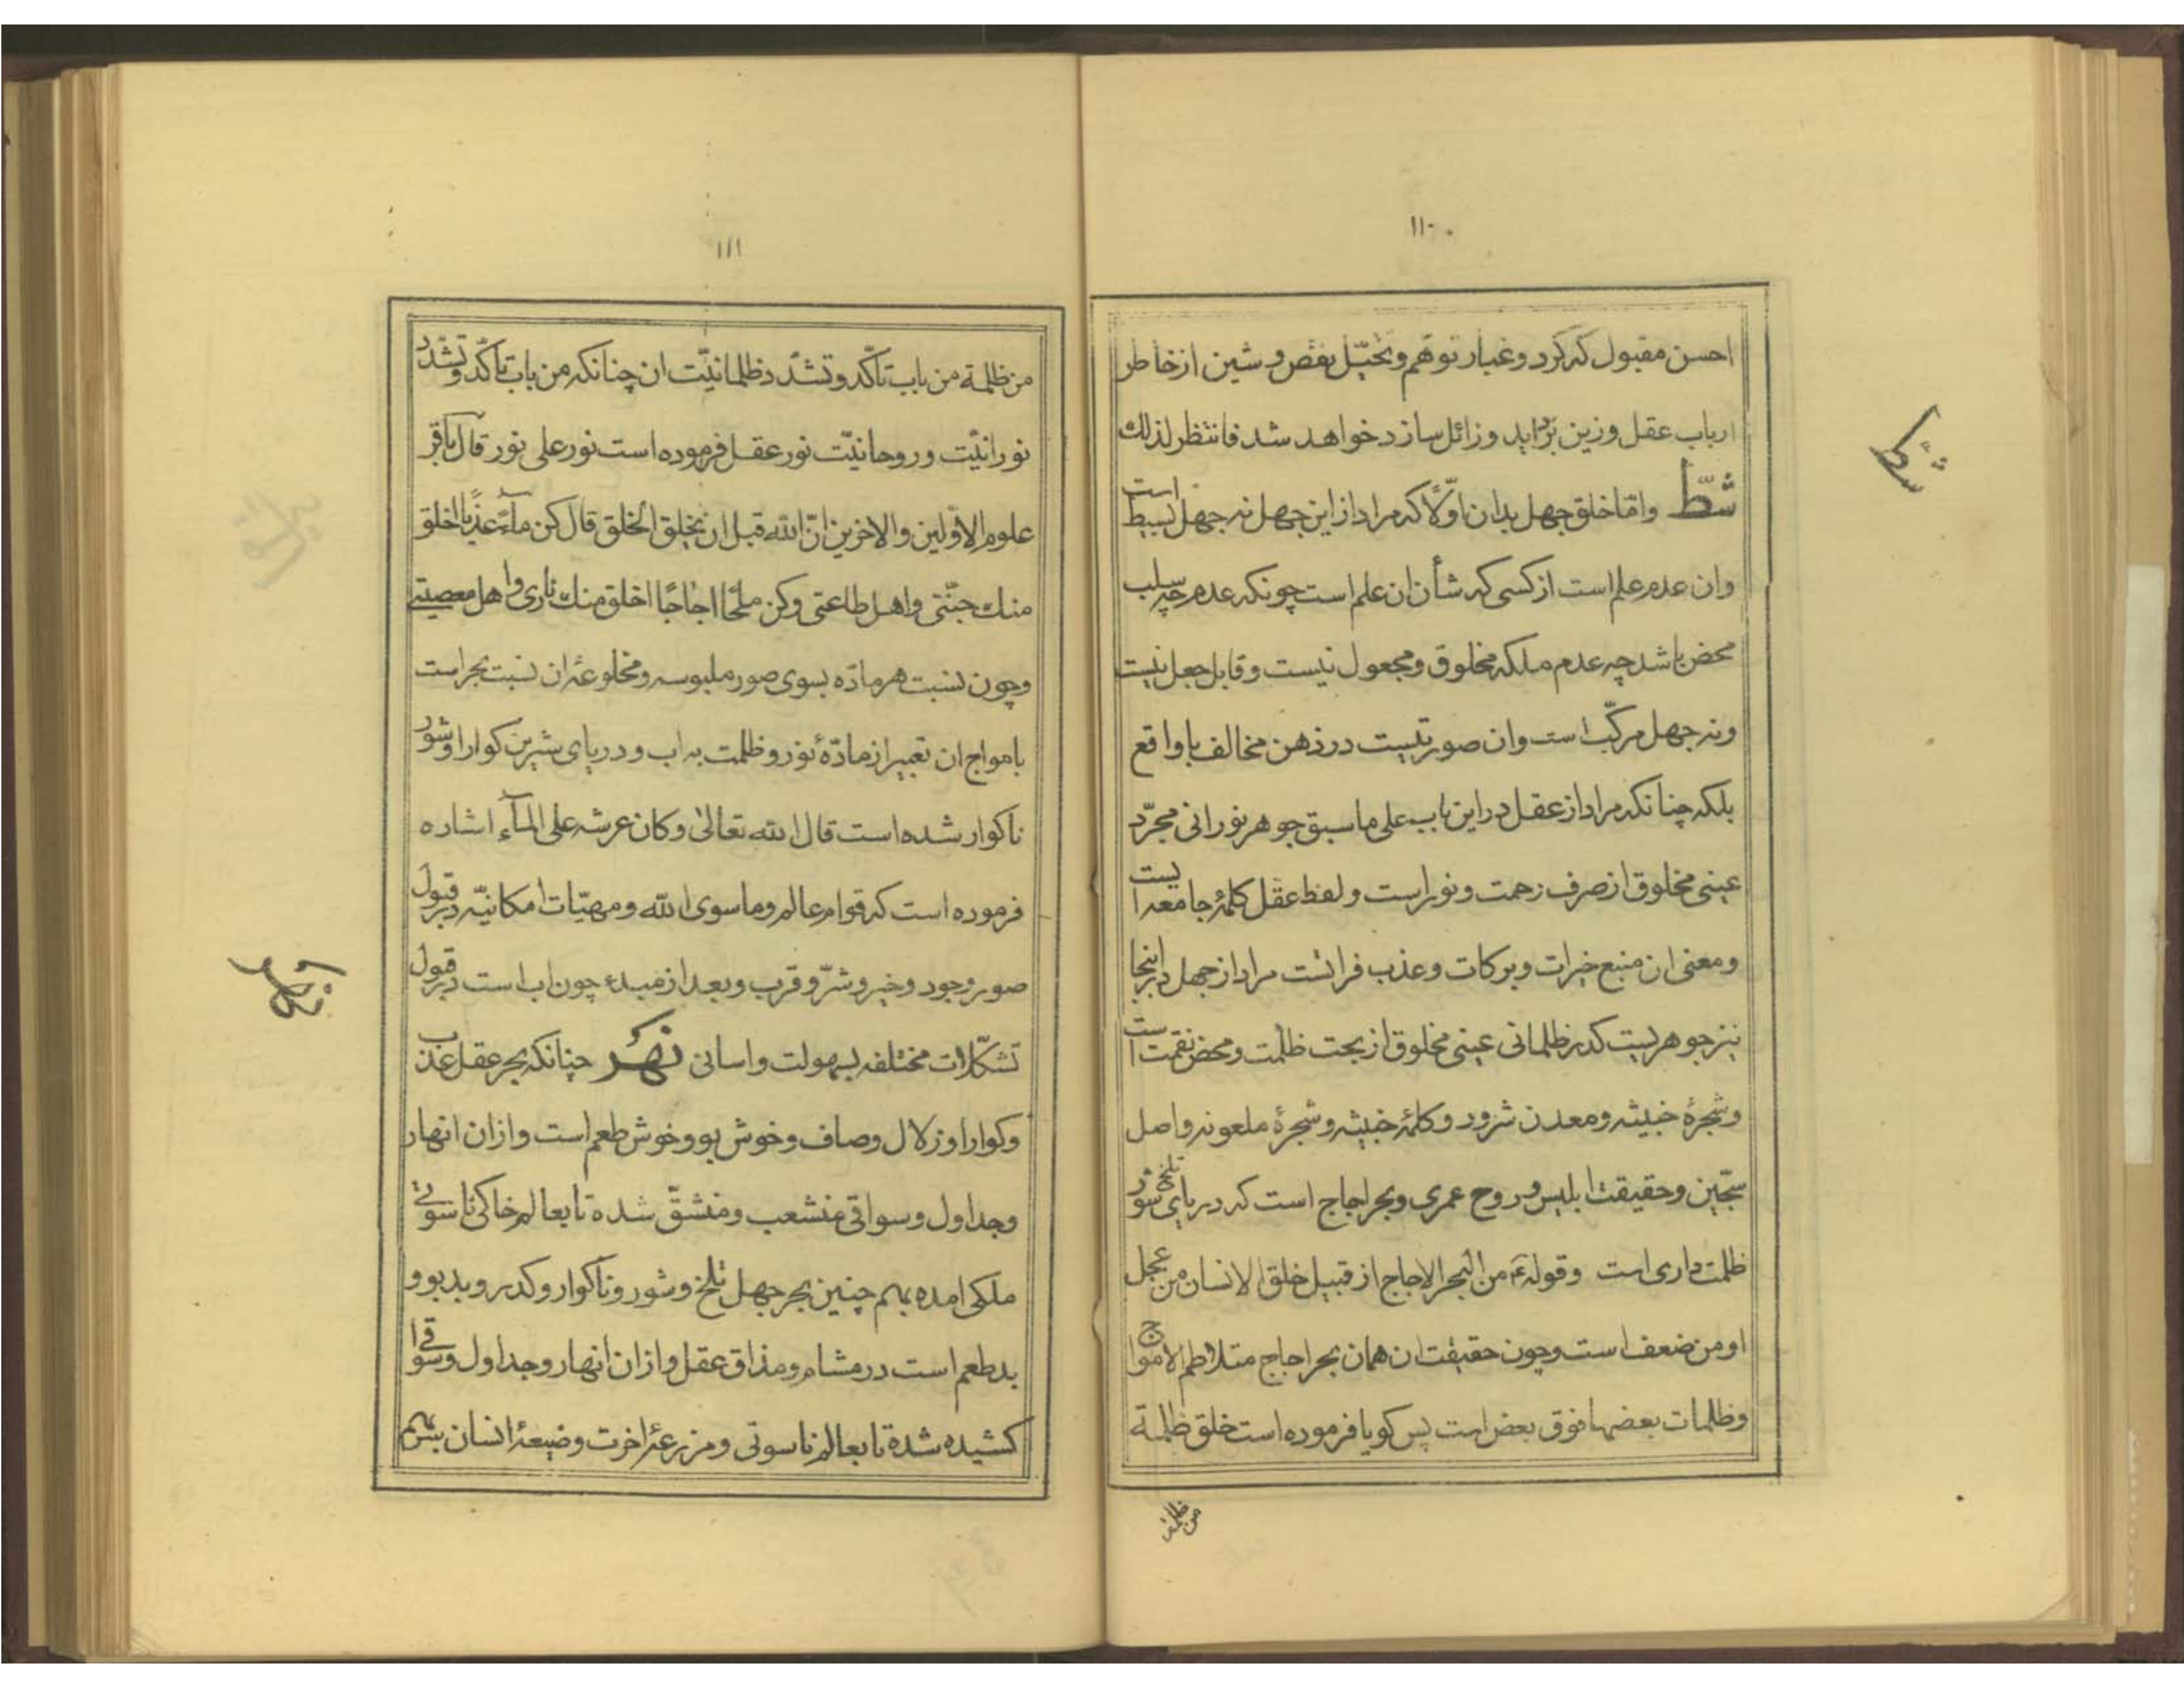 ۱۱۰
احسن مقبول که گرد و غبار توهّم و تخیّل نقص و شین از خاطر
ارباب عقل وزین بزداید و زائل سازد خواهد شد فانتظر لذلك
شطّ وامّا خلق جهل بدان اوّلاً که مراد از این جهل نه جهل بسیط است
وان عدم علم است از کسی که شأن ان علم است چونکه عدم چه سلب
محض باشد چه عدم ملکه مخلوق و مجعول نیست و قابل جعل نیست
ونه جهل مرکّب است وان صورتیست در ذهن مخالف با واقع
بلکه چنانکه مراد از عقل در این باب علی ما سبق جوهر نورانی مجرّد
عینی مخلوق از صرف رحمت و نور است و لفظ عقل کلمهٔ جامعه ایست
ومعنی ان منبع خیرات و برکات و عذب فراتست مراد از جهل در اینجا
نیز جوهریست کدر ظلمانی عینی مخلوق از بحت ظلمت و محض نقمت است
وشجرهٔ خبیثه و معدن شرور و کلمهٔ خبیثه و شجرهٔ ملعونه و اصل
سجّین و حقیقت ابلیس و روح عمری و بحر اجاج است که دریای تلخ شور
ظلمت داری است وقوله ع من البحر الاجاج از قبیل خلق الانسان من عجل
او من ضعف است و چون حقیقت ان همان بحر اجاج متلاطم الامواج
وظلمات بعضها فوق بعض است پس کویا فرموده است خلق ظلمة
من ظلمة
شطّ
۱۱۱
من ظلمة من باب تأکّد و تشدّد ظلمانیّت ان چنانکه من باب تأکّد و تشدّد
نورانیّت و روحانیّت نور عقل فرموده است نور علی نور قال باقر
علوم الاوّلین والاخرین انّ الله قبل ان یخلق الخلق قال کن مآءً عذبًا اخلق
منك جنّتی واهل طاعتی وکن ملحًا اجاجًا اخلق منك ناری واهل معصیتی
وچون نسبت هر مادّه بسوی صور ملبوسه و مخلوعهٔ ان نسبت بحر است
بامواج ان تعبیر از مادّهٔ نور و ظلمت به اب و دریای شیرین کوارا و شور
ناکوار شده است قال الله تعالی وکان عرشه علی المآء اشاره
فرموده است که قوام عالم وما سوی الله ومهیّات امکانیّه در قبول
صور وجود و خیر و شرّ و قرب و بعد از مبدء چون اب است در قبول
تشکّلات مختلفه بسهولت واسانی نهر چنانکه بحر عقل عذب
وکوارا و زلال و صاف و خوش بو و خوش طعم است و از ان انهار
وجداول وسواقی منشعب ومنشقّ شده تا بعالم خاکی ناسوتی
ملکی امده بهم چنین بحر جهل تلخ و شور و ناکوار و کدر و بدبو و
بدطعم است در مشام و مذاق عقل و از ان انهار و جداول و سواقی
کشیده شده تا بعالم ناسوتی و مزرعهٔ اخرت و ضیعهٔ انسان
نهر